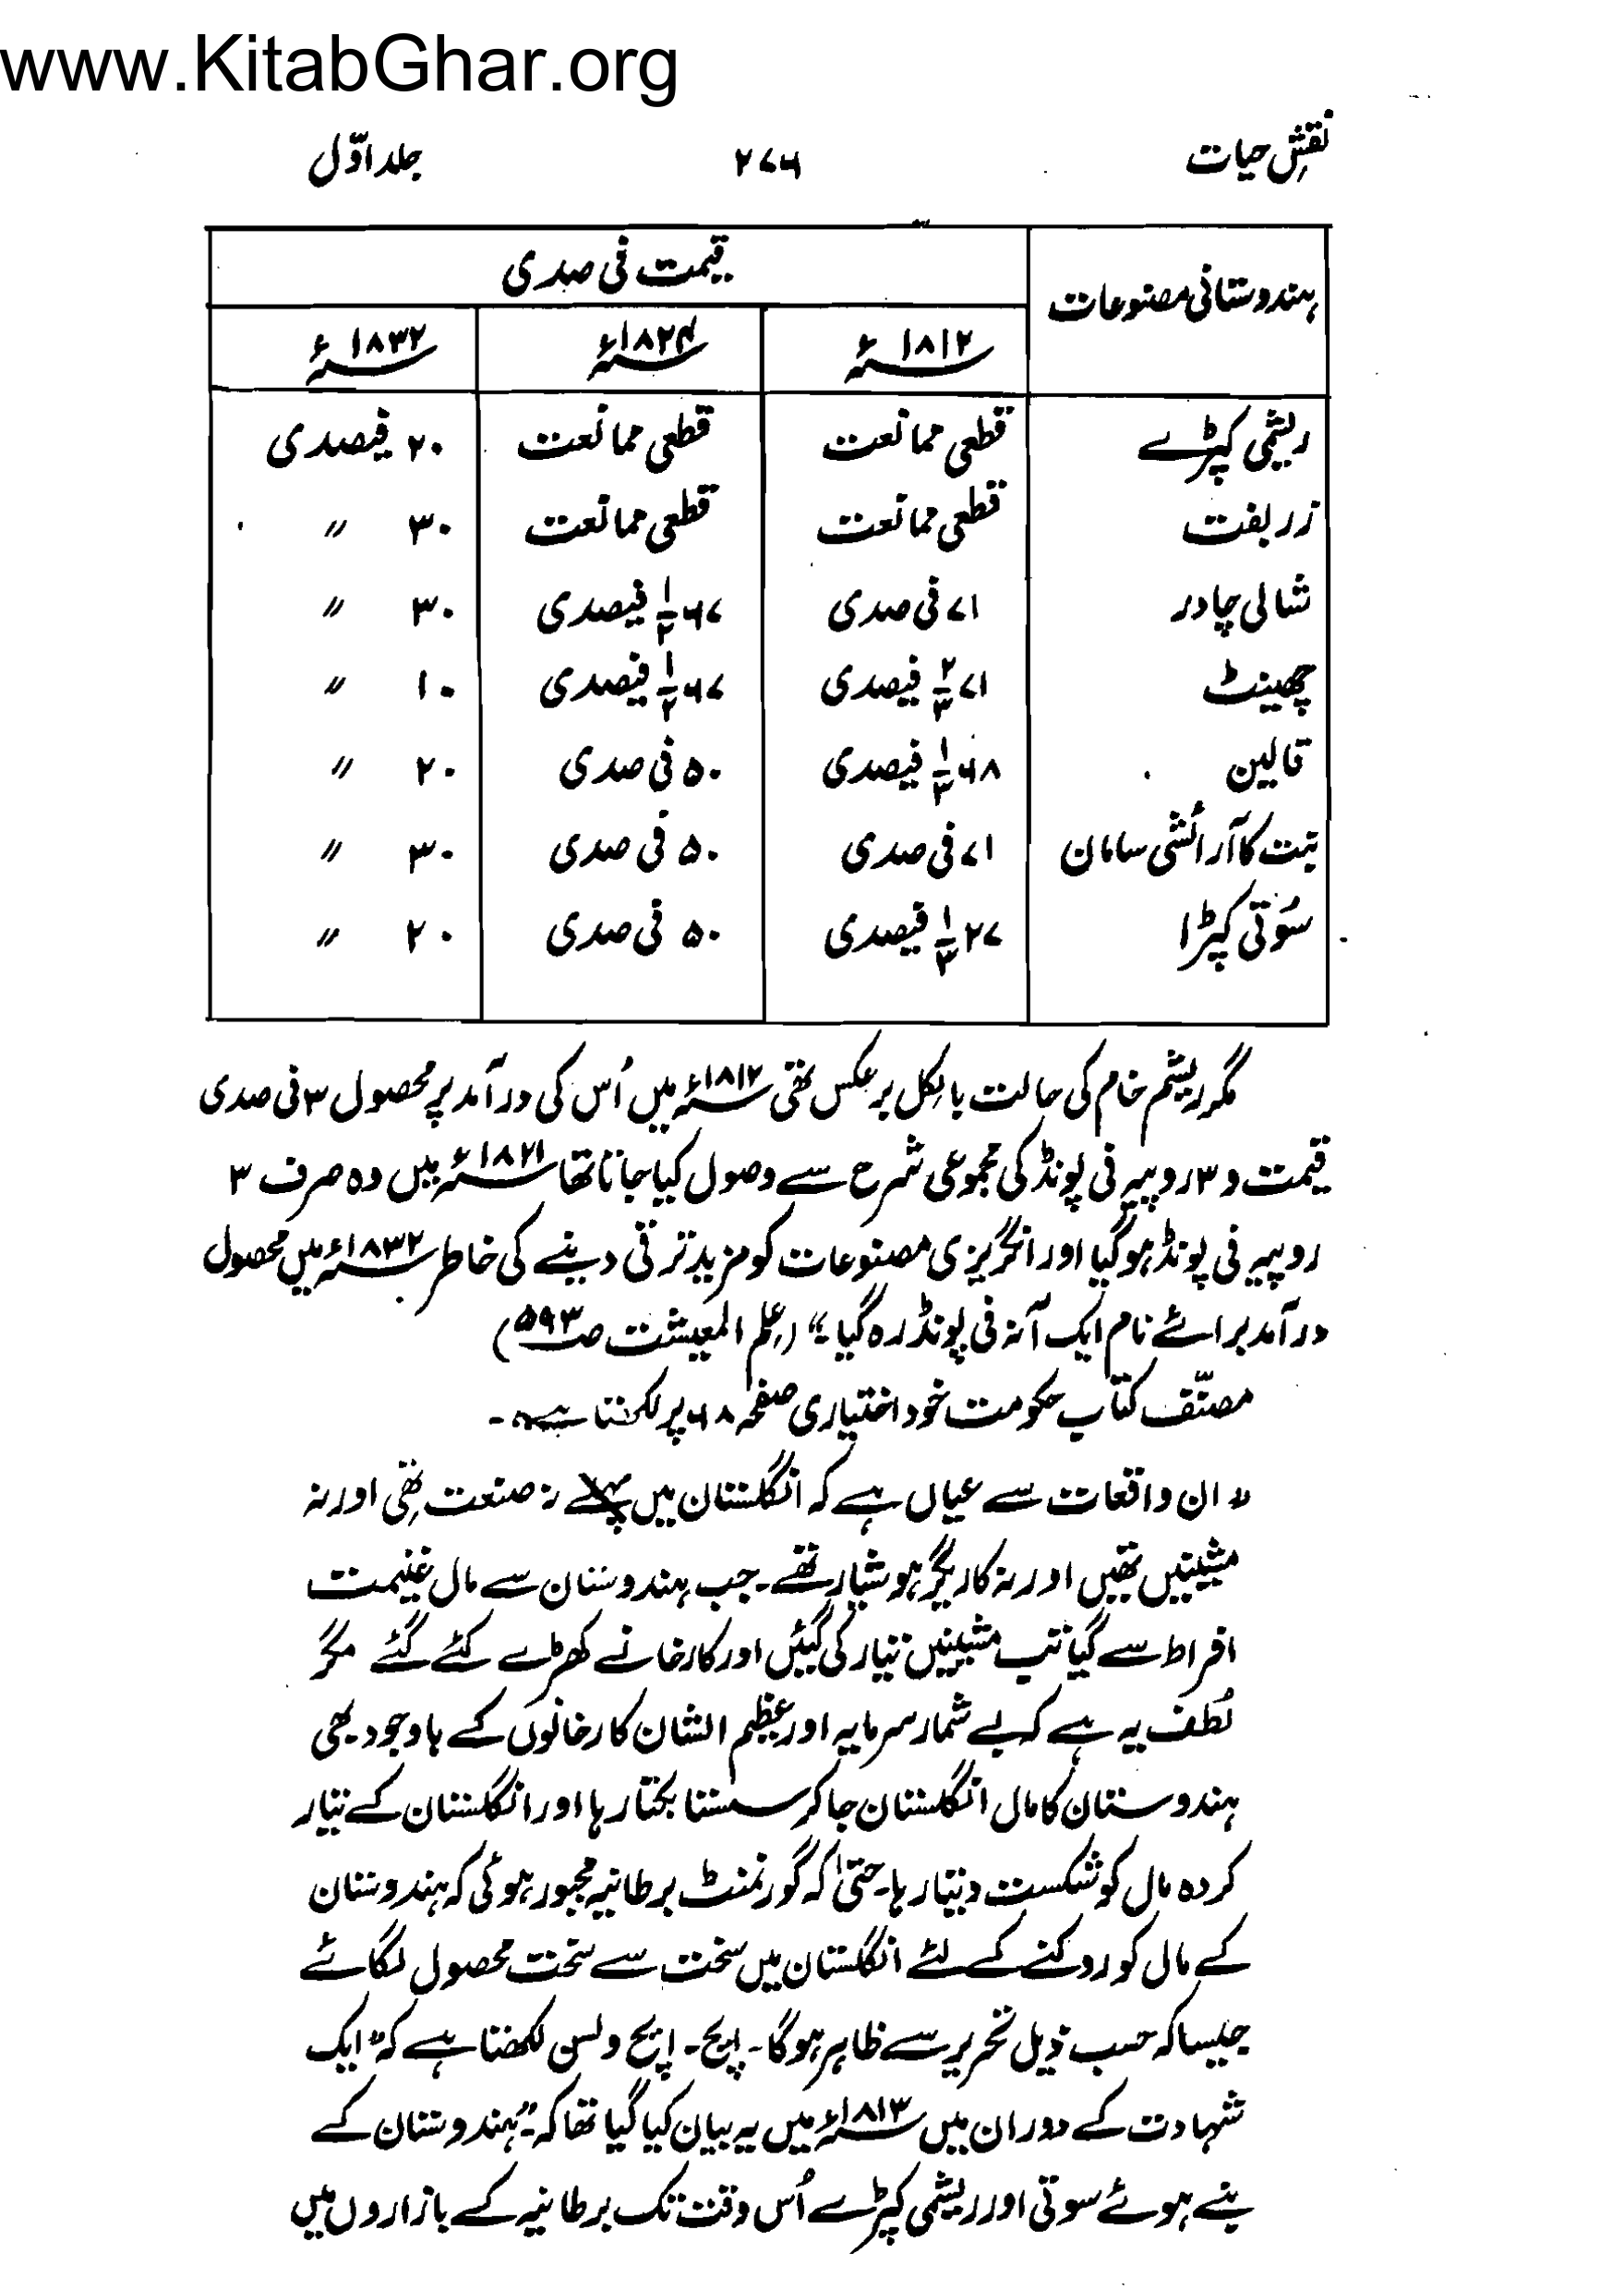 www.KitabGhar.org
نقشِ حیات ۲۷۶ جلد اوّل
ہندوستانی مصنوعات قیمت فی صدی
۱۸۱۲ء ۱۸۲۴ء ۱۸۳۲ء
ریشمی کپڑے قطعی ممانعت قطعی ممانعت ۲۰ فیصدی
زر بفت قطعی ممانعت قطعی ممانعت ۳۰ 〃
شالی چادر ۷۱ فی صدی ۶۷ ۱/۲ فیصدی ۳۰ 〃
چھینٹ ۷۱ ۲/۳ فیصدی ۶۷ ۱/۲ فیصدی ۱۰ 〃
قالین ۶۸ ۱/۳ فیصدی ۵۰ فی صدی ۲۰ 〃
تبت کا آرائشی سامان ۷۱ فی صدی ۵۰ فی صدی ۳۰ 〃
سُوتی کپڑا ۲۷ ۱/۳ فیصدی ۵۰ فی صدی ۲۰ 〃
مگر ریشم خام کی حالت بالکل برعکس تھی ۱۸۱۲ء میں اُس کی درآمد پر محصول ۳ فی صدی
قیمت و ۳ روپیہ فی پونڈ کی مجموعی شرح سے وصول کیا جاتا تھا ۱۸۲۱ء میں وہ صرف ۳
روپیہ فی پونڈ ہو گیا اور انگریزی مصنوعات کو مزید ترقی دینے کی خاطر ۱۸۳۲ء میں محصول
درآمد برائے نام ایک آنہ فی پونڈ رہ گیا۔“ (علم المعیشت صـ ۵۹۳)
مصنّف کتاب حکومت خود اختیاری صفحہ ۶۸ پر لکھتا ہے۔
”ان واقعات سے عیاں ہے کہ انگلستان میں پہلے نہ صنعت تھی اور نہ
مشینیں تھیں اور نہ کاریگر ہوشیار تھے۔ جب ہندوستان سے مال غنیمت
افراط سے گیا تب مشینیں تیار کی گئیں اور کارخانے کھڑے کئے گئے مگر
لُطف یہ ہے کہ بے شمار سرمایہ اور عظیم الشان کارخانوں کے باوجود بھی
ہندوستان کا مال انگلستان جا کر سستا بکتا رہا اور انگلستان کے تیار
کردہ مال کو شکست دیتا رہا۔ حتیٰ کہ گورنمنٹ برطانیہ مجبور ہوئی کہ ہندوستان
کے مال کو روکنے کے لئے انگلستان میں سخت سے سخت محصول لگائے
جیسا کہ حسب ذیل تحریر سے ظاہر ہوگا۔ ایچ۔ ایچ ولسن لکھتا ہے کہ ”ایک
شہادت کے دوران میں ۱۸۱۳ء میں یہ بیان کیا گیا تھا کہ ”ہندوستان کے
بنے ہوئے سوتی اور ریشمی کپڑے اُس وقت تک برطانیہ کے بازاروں میں